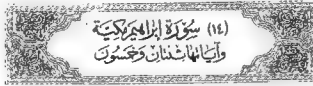 (١٤) سُورَةُ إِبْرَاهِيمَ مَكِّيَّة
وَآيَاتُهَا ثِنْتَانِ وَخَمْسُونَ